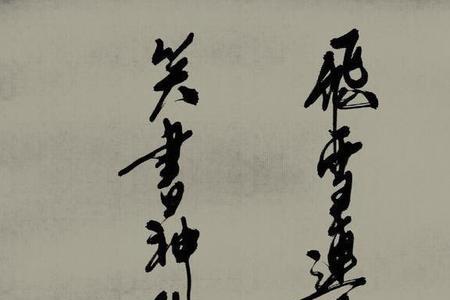 飛雪連
笑書神